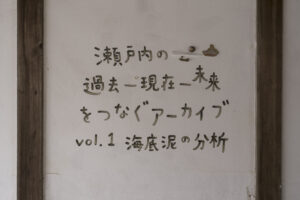 瀬戸内の
過去－現在－未来
をつなぐアーカイブ
vol.1 海底泥の分析